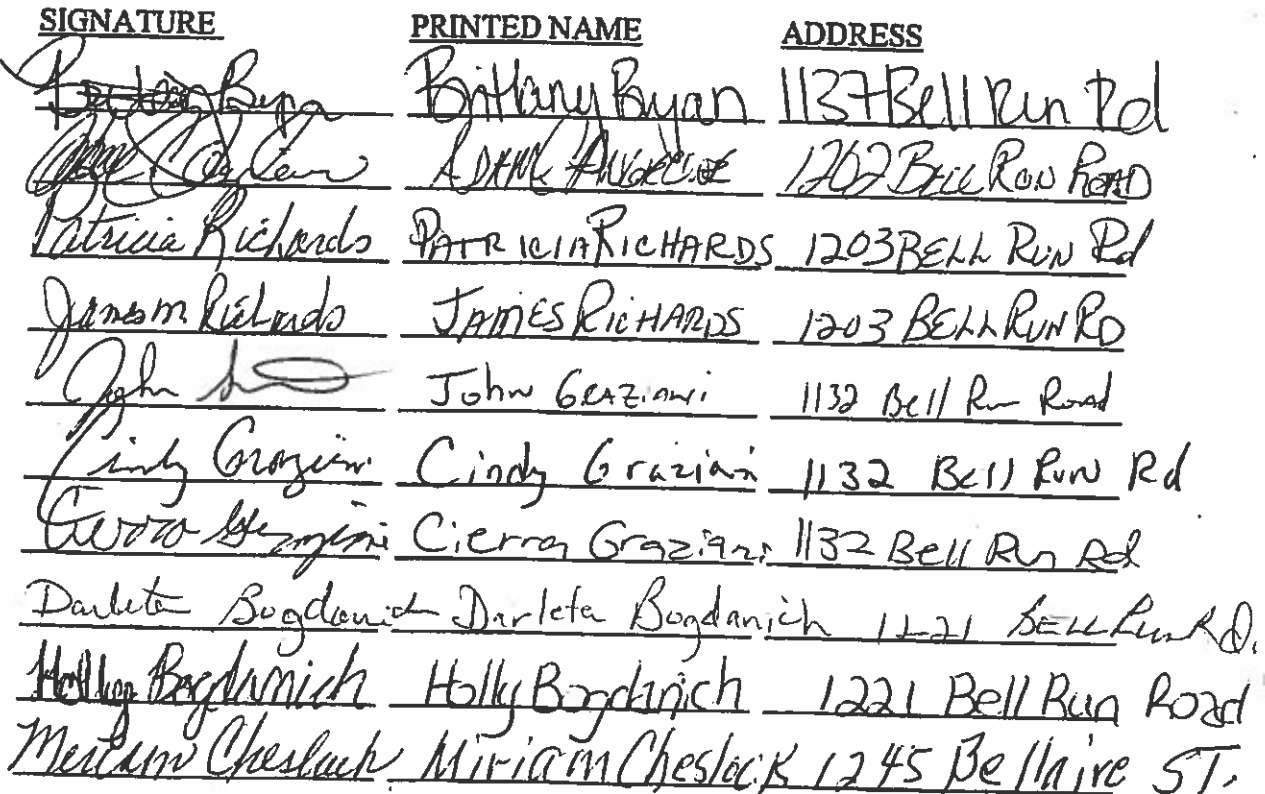 SIGNATURE PRINTED NAME ADDRESS
Brittany Bryan 1137 Bell Run Rd
1202 BELL RUN ROAD
Patricia Richards PATRICIA RICHARDS 1203 BELL RUN Rd
James M Richards JAMES RICHARDS 1203 BELL RUN RD
John John GRAZiANi 1132 Bell Run Road
Cindy Graziani Cindy Graziani 1132 Bell Run Rd
Cierra Graziani Cierra Graziani 1132 Bell Run Rd
Darleta Bogdanich Darleta Bogdanich 1221 BELL Run RD.
Holly Bogdanich Holly Bogdanich 1221 Bell Run Road
Miriam Cheslock Miriam Cheslock 1245 Bellaire ST.